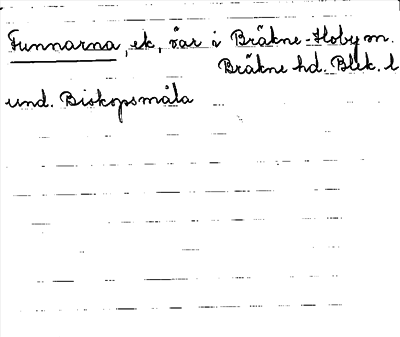 Funnarna, ek, öar i Bräkne-Hoby m.
Bräkne hd. Blek. l
und. Biskopsmåla